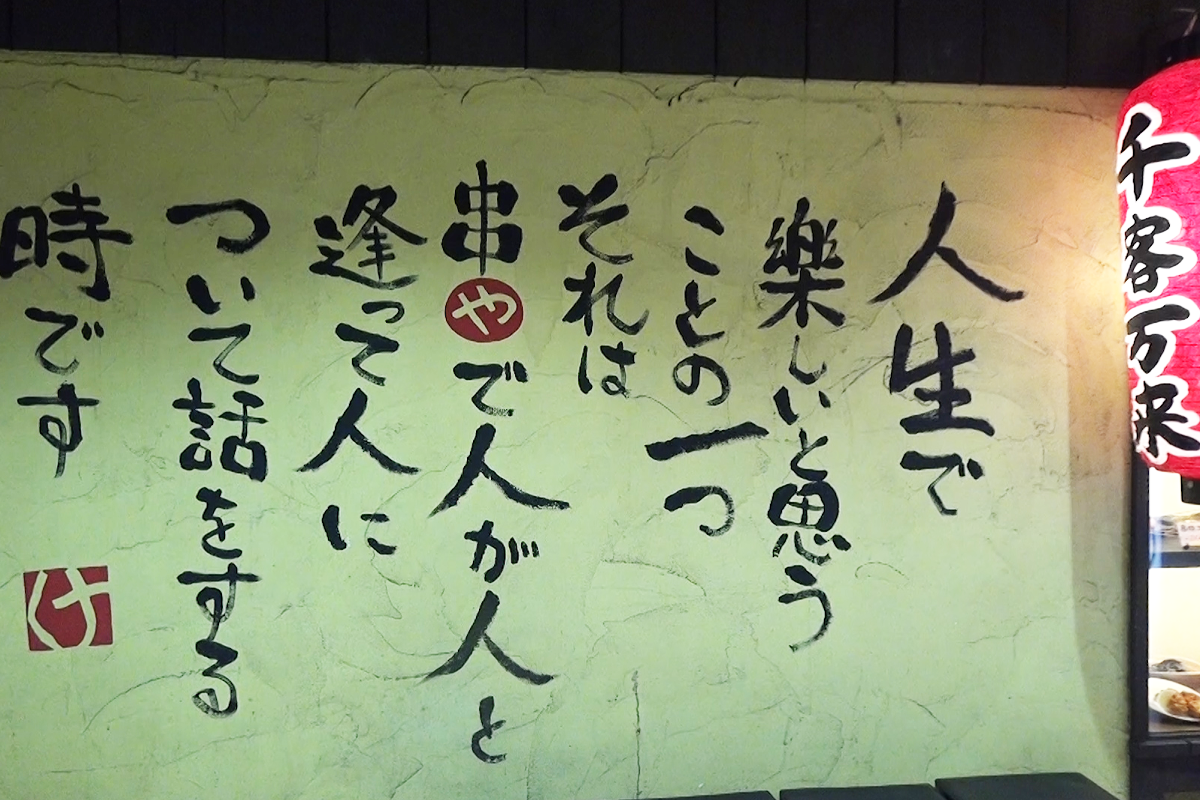 人生で
楽しいと思う
ことの一つ
それは
串やで人が人と
逢って人に
ついて話をする
時です
け
千客万来